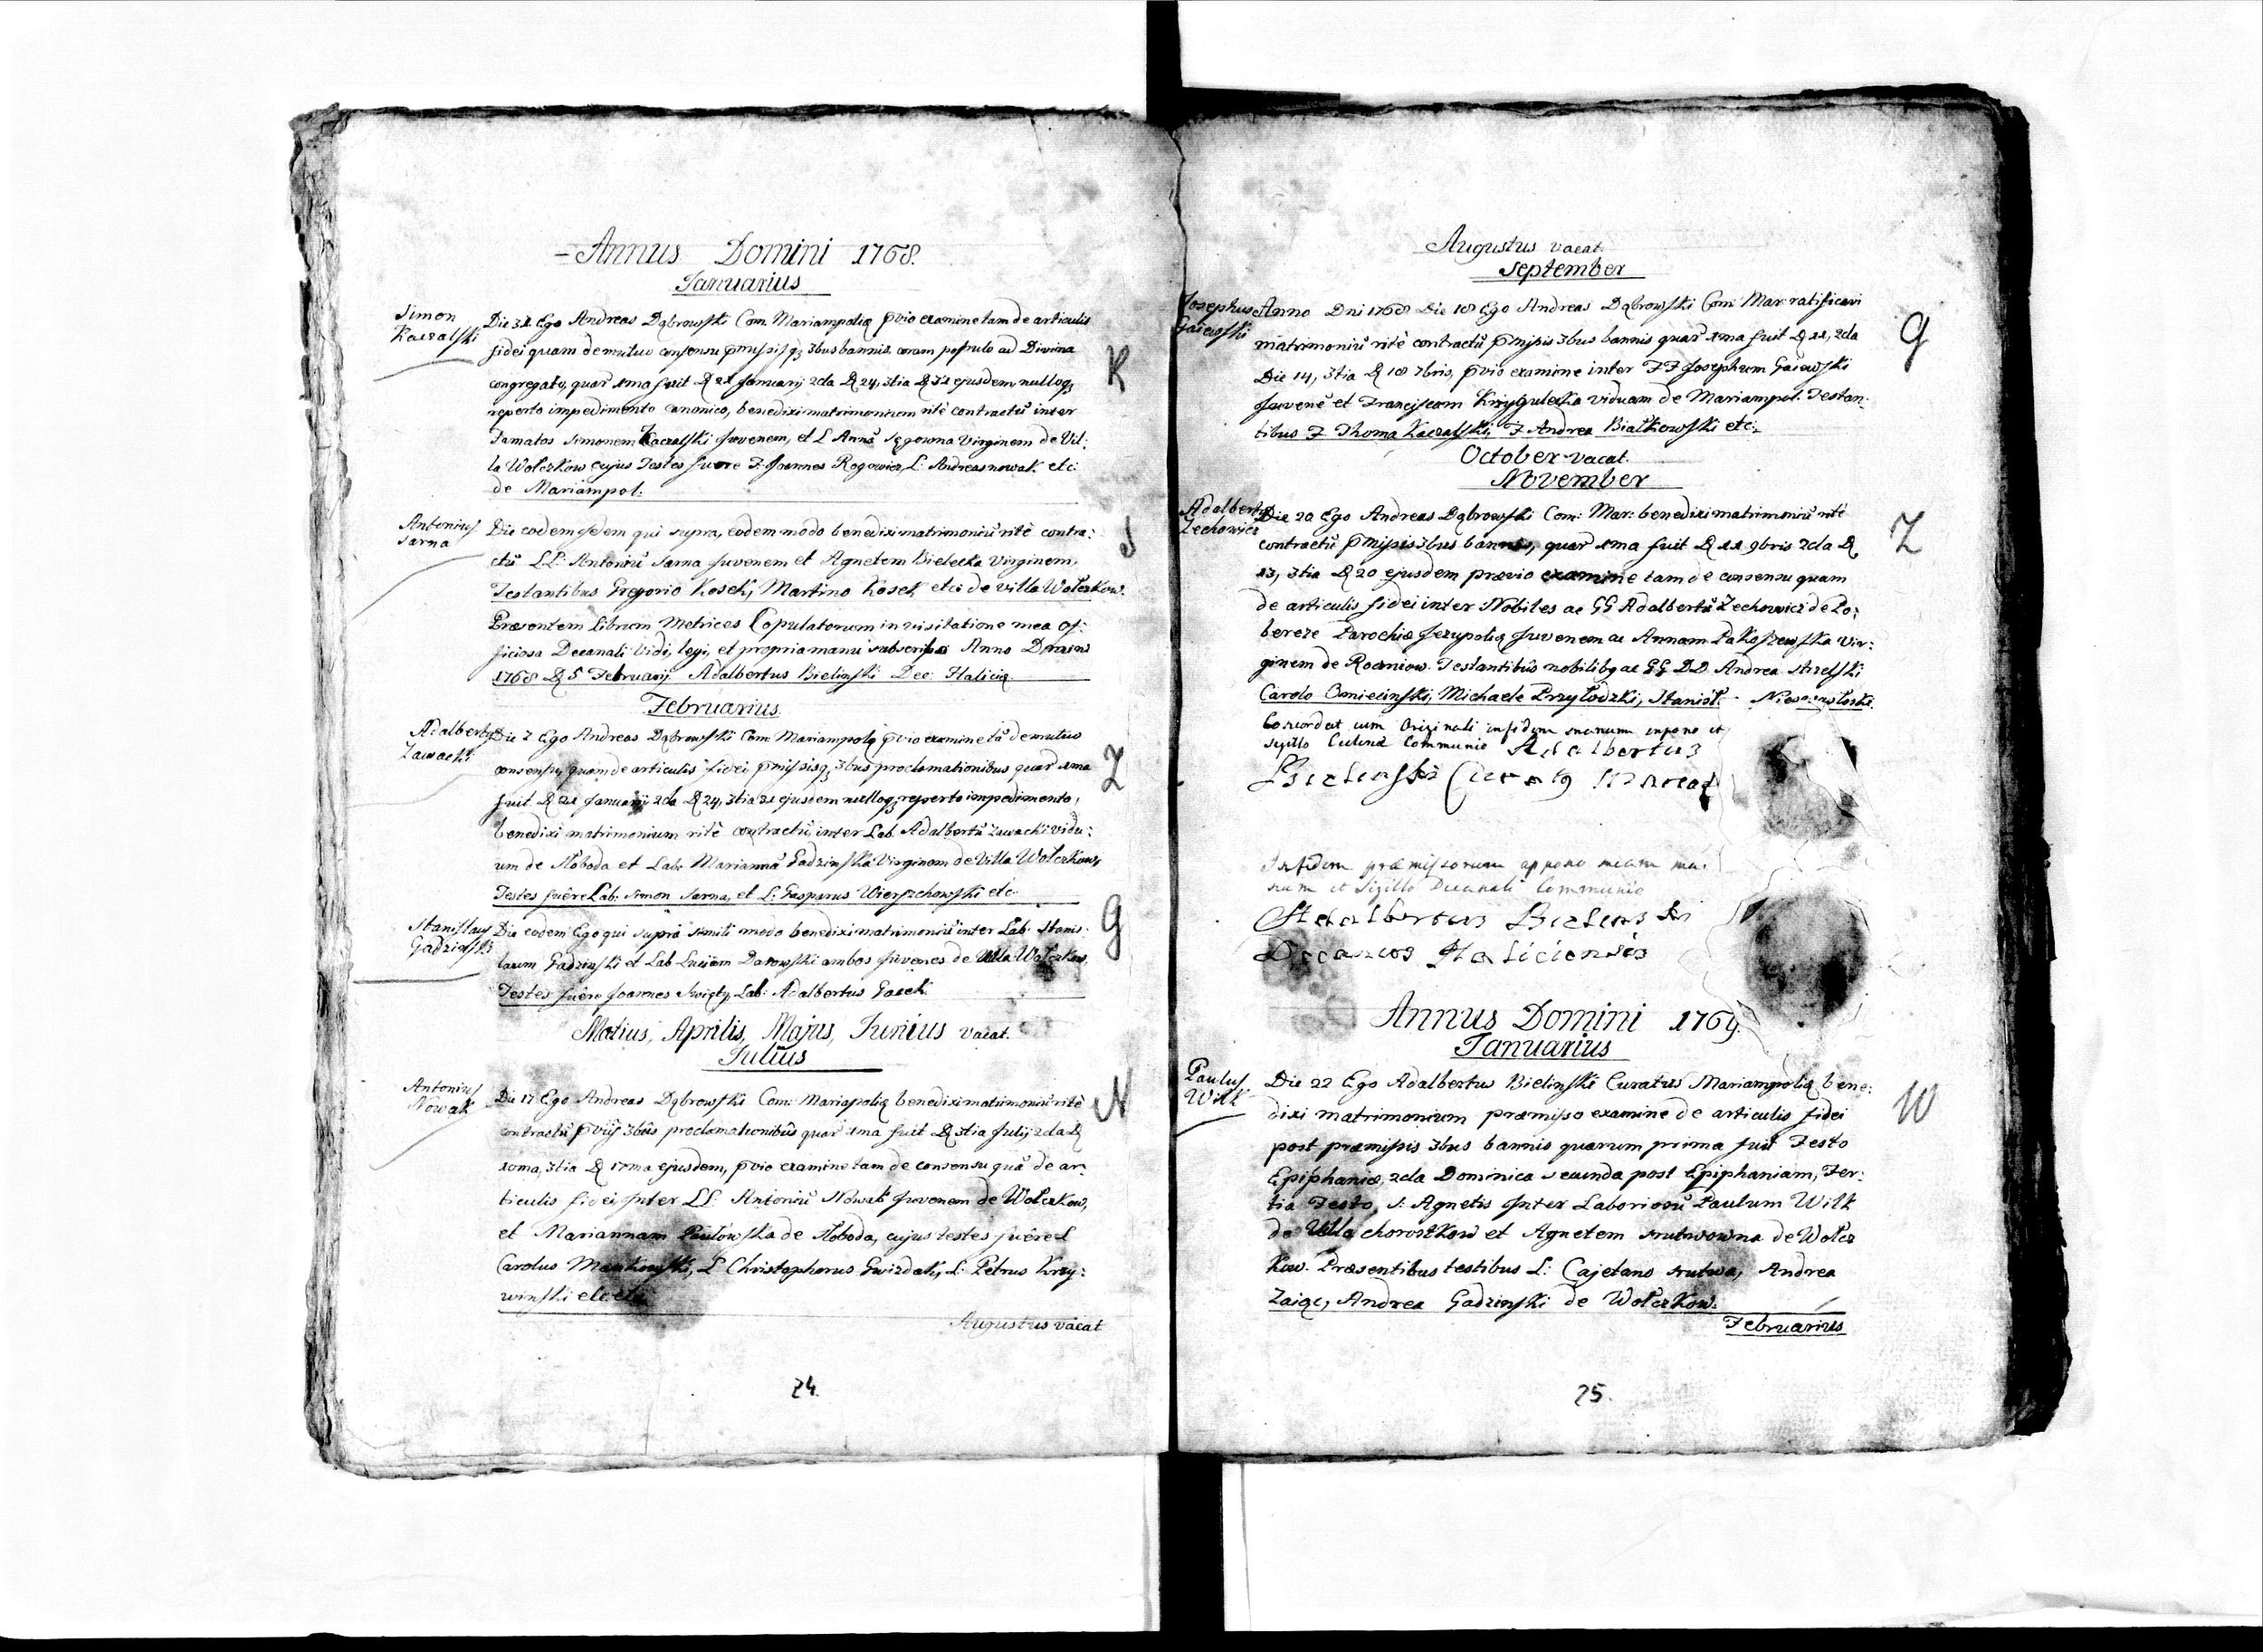 Annus Domini 1768.
Januarius
Simon
Kaczalski
Die 31 Ego Andreas Dąbrowski Com: Mariampolię p̄vio examine tam de articulis
fidei quam de mutuo consensu p̄missisq; 3bus bannis coram populo ad Divina
congregato, quar̄ 1ma fuit D 21 Januarij 2da D 24, 3tia D 31 ejusdem nulloq;
reperto impedimento canonico, benedixi matrimonium ritè contractū inter
Famatos Simonem Kaczalski Juvenem, et L Annā Virginem de Vil:
la Wołczkow cujus Testes fuere F: Joannes Rogowicz, L: Andreas Nowak etc:
de Mariampol:
K
Antonius
Sarna
Die eodem Idem qui supra, eodem modo benedixi matrimoniū ritè contra:
ctū LL: Antoniū Sarna Juvenem et Agnetem Bielecka Virginem,
Testantibus Gregorio Kosek, Martino Kosek etc: de villa Wołczkow.
S
Præsentem Librum Metrices Copulatorum in visitatione mea of:
ficiosa Decanali Vidi, legi, et propria manu subscripsi Anno Domini
1768 D 5 Februarij Adalbertus Bielinski Dec: Halicię
Februarius
Adalbertus
Zawacki
Die 2 Ego Andreas Dąbrowski Com: Mariampolię p̄vio examine tā de mutuo
consensu, quam de articulis fidei, p̄missisq; 3bus proclamationibus quar̄ 1ma
fuit D 21 Januarij 2da D 24, 3tia 31 ejusdem nulloq; reperto impedimento,
benedixi matrimonium ritè contractū inter Lab: Adalbertū Zawacki vidu:
um de Słoboda et Lab: Mariannā Gadzinska Virginem de Villa Wołczkow,
Testes fuêre Lab: Simon Sarna, et L: Gasparus Wierzchowski etc:
Z
Stanislaus
Gadzinski
Die eodem Ego qui suprà simili modo benedixi matrimoniū inter Lab: Stanis:
laum Gadzinski et Lab Luciam Darowski ambos Juvenes de Villa Wołczkow,
Testes fuêre Joannes Swięty, Lab: Adalbertus Gacek.
G
Martius, Aprilis, Majus, Junius vacat.
Julius
Antonius
Nowak
Die 17 Ego Andreas Dąbrowski Com: Mariapolię benedixi matrimoniū ritè
contractū p̄viis 3bus proclamationibus quar̄ 1ma fuit D 3tia Julij 2da D
10ma, 3tia D 17ma ejusdem, p̄vio examine tam de consensu quā de ar:
ticulis fidei, Inter LL: Antoniū Nowak Juvenem de Wołczkow,
et Mariannam Pawlowska de Słoboda, cujus testes fuêre L
Carolus L Christophorus Gwizdak, L: Petrus Krzy:
winski etc: etc:
N
Augustus vacat
24.
Augustus vacat.
September
Josephus
Gaiewski
Anno Dni 1768 Die 18 Ego Andreas Dąbrowski Com: Mar: ratificavi
matrimoniū ritè contractū p̄missis 3bus bannis quar̄ 1ma fuit D 11, 2da
Die 14, 3tia D 18 7bris, p̄vio examine inter FF Josephum Gaiewski
Juvenē et Franciscam Krzygulecka viduam de Mariampol. Testan:
tibus F Thoma Kaczalski, F Andrea Białkowski etc:
G
October vacat.
November
Adalbertus
Zechowicz
Die 20 Ego Andreas Dąbrowski Com: Mar: benedixi matrimoniū ritè
contractū p̄missis 3bus bannis, quar̄ 1ma fuit D 11 9bris 2da D
13, 3tia D 20 ejusdem prævio examine tam de consensu quam
de articulis fidei inter Nobiles ac GG Adalbertū Zechowicz de Po:
bereze Parochię Jezupolię Juvenem ac Annam Pakoszewska Vir:
ginem de Testantibus nobilibq ac GG DD Andrea
Carolo Michaele Przyłodzki, Stanisł:
Z
Concordat cum Originali in fidem manum appono et
sigillo Curiæ Communio Adalbertus
Bielinski Curatq
In fidem præmissorum appono meam ma:
num et Sigillo Decanali Communio
Adalbertus Bielinski
Decanus Haliciensis
Annus Domini 1769.
Januarius
Paulus
Wilk
Die 22 Ego Adalbertus Bielinski Curatus Mariampolię bene:
dixi matrimonium præmisso examine de articulis fidei
post præmissis 3bus bannis quarum prima fuit Festo
Epiphaniæ, 2da Dominica secunda post Epiphaniam, Ter:
tia Festo S: Agnetis Inter Laboriosū Paulum Wilk
de Villa chorostkow et Agnetem Srutwowna de Wołcz
kow. Præsentibus testibus L: Cajetano Srutwa, Andrea
Zaiąc, Andrea Gadzinski de Wołczkow.
W
Februarius
25.